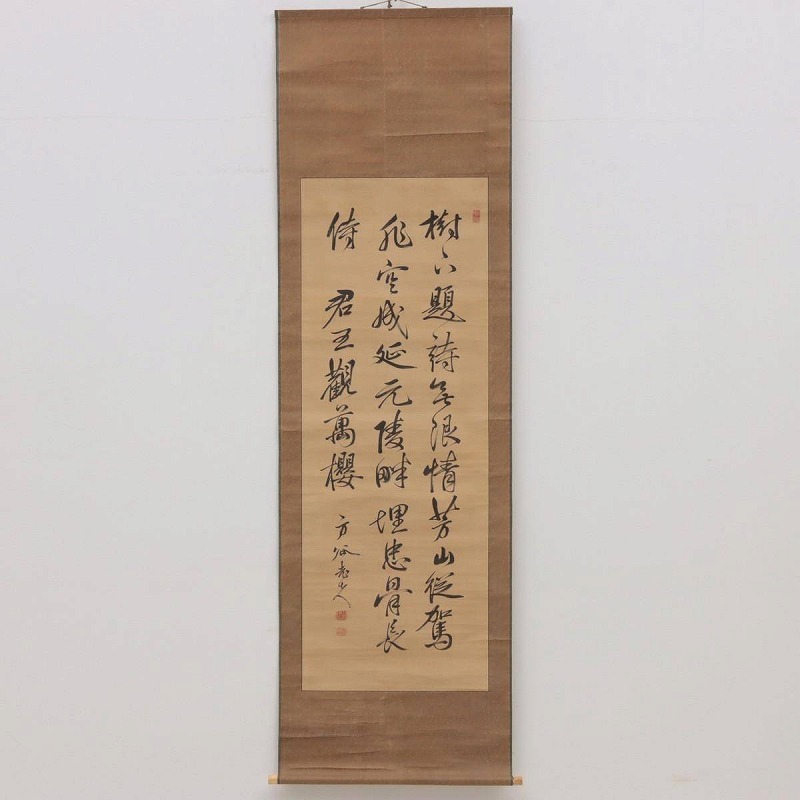 樹下題詩無限情芳山從駕
非空成延元陵畔埋忠骨長
侍君王觀萬櫻
方谷老人